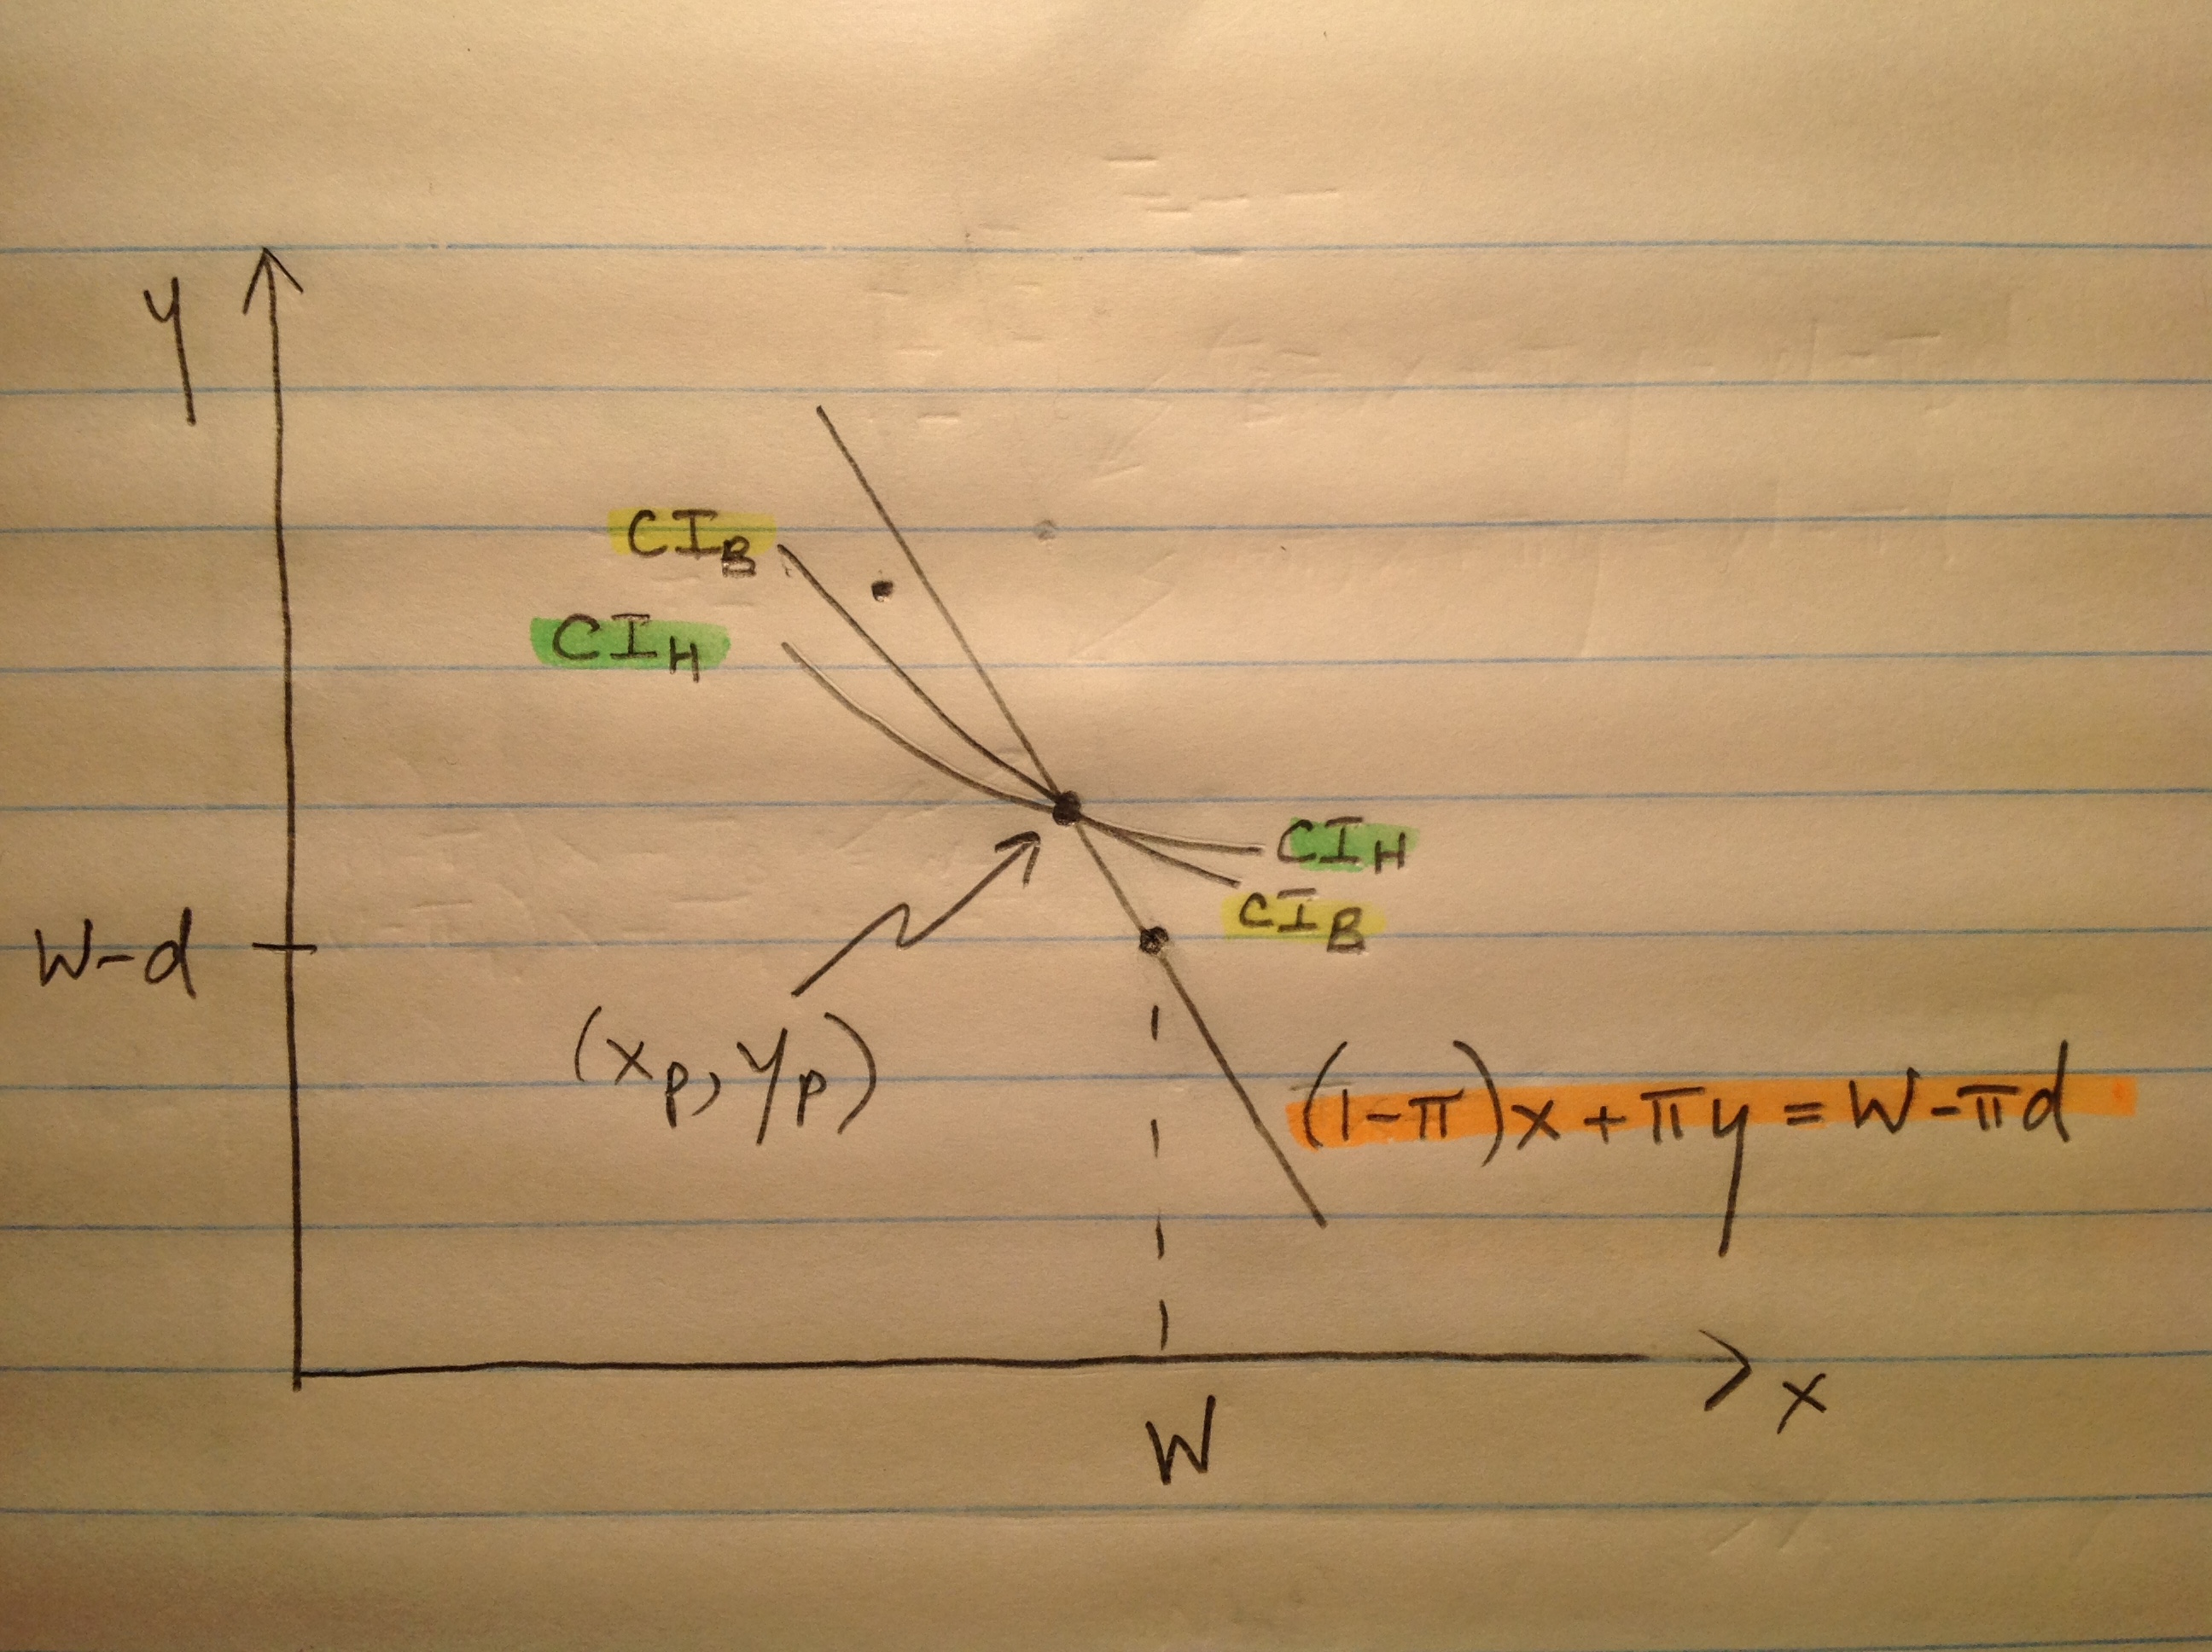 y
CI_B
CI_H
CI_H
CI_B
W-d
(x_p, y_p)
(1-π)x + πy = W-πd
x
W